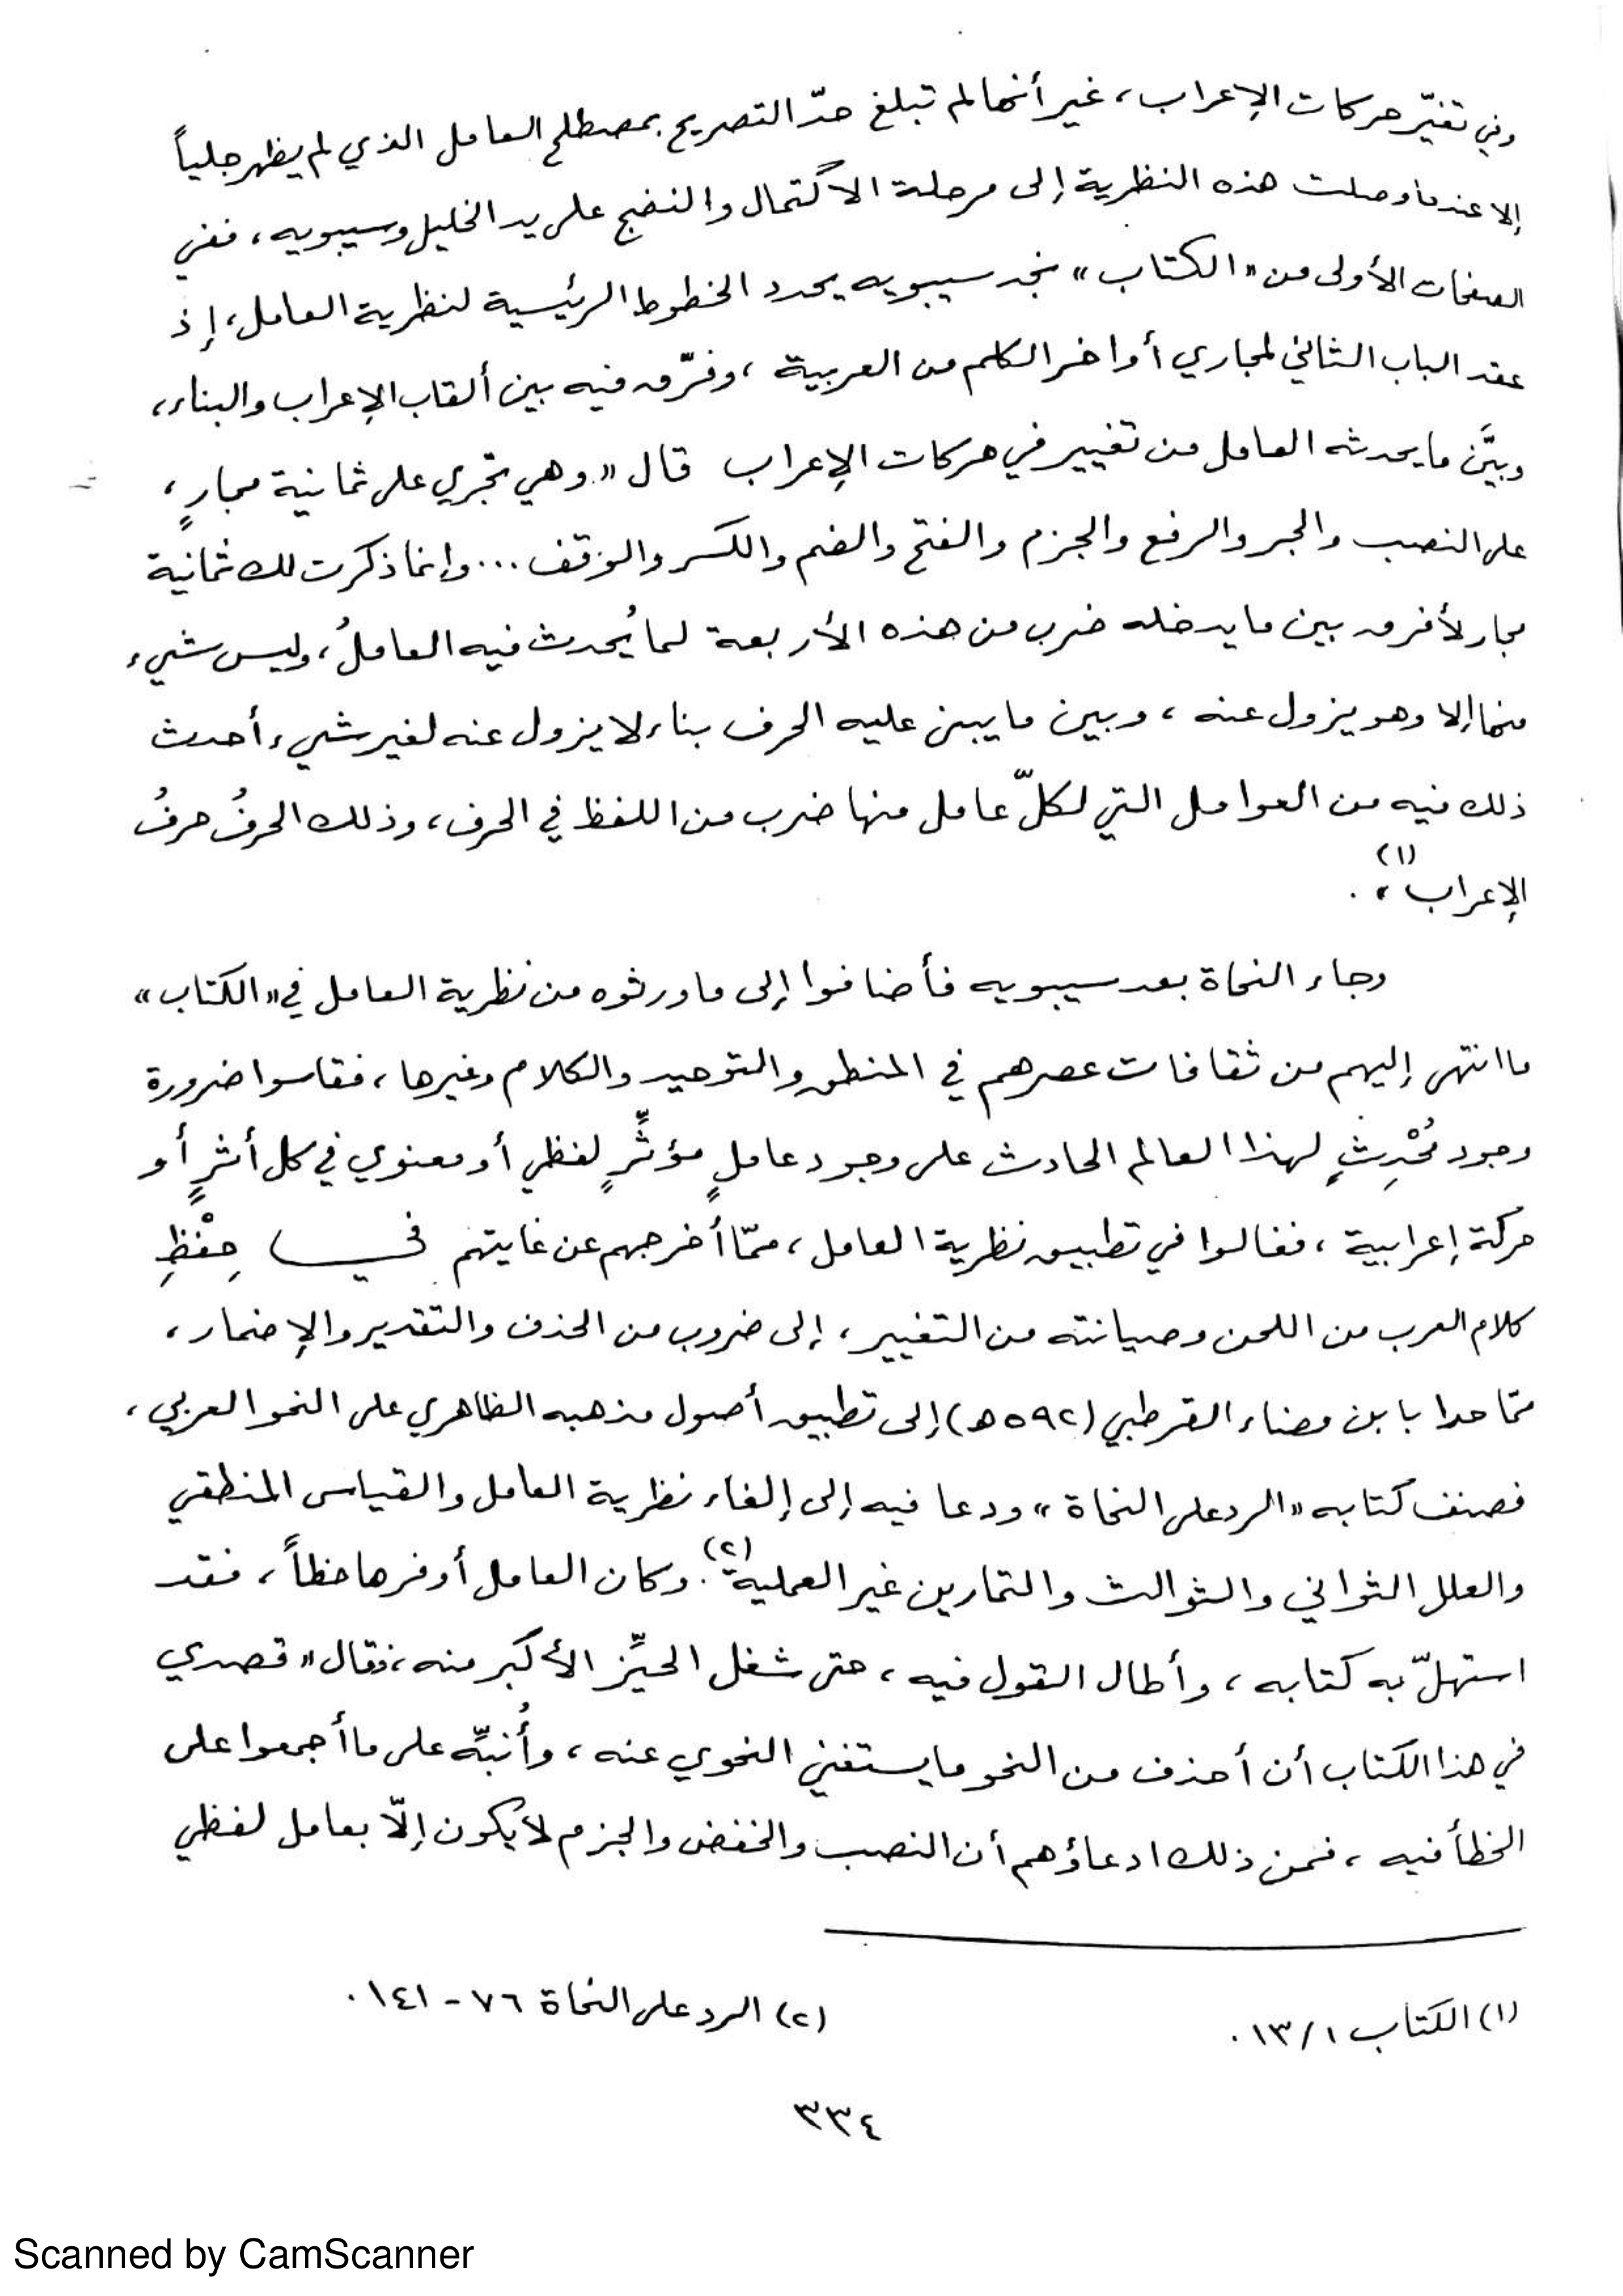 وفي تغيّر حركات الإعراب، غير أنها لم تبلغ حدّ التصريح بمصطلح العامل الذي لم يظهر جلياً
إلا عندما وصلت هذه النظرية إلى مرحلة الاكتمال والنضج على يد الخليل وسيبويه، ففي
الصفحات الأولى من «الكتاب» نجد سيبويه يحدد الخطوط الرئيسية لنظرية العامل، إذ
عقد الباب الثاني لمجاري أواخر الكلم من العربية، وفرّق فيه بين ألقاب الإعراب والبناء،
وبيَّن ما يحدثه العامل من تغيير في حركات الإعراب قال «وهي تجري على ثمانية مجارٍ،
على النصب والجر والرفع والجزم والفتح والضم والكسر والوقف ... وإنما ذكرت لك ثمانية
مجار لأفرق بين ما يدخله ضرب من هذه الأربعة لما يُحدث فيه العاملُ، وليس شيء
منها إلا وهو يزول عنه، وبين ما يبنى عليه الحرف بناء لا يزول عنه لغير شيء أحدث
ذلك فيه من العوامل التي لكلّ عامل منها ضرب من اللفظ في الحرف، وذلك الحرفُ حرفُ
الإعراب»(١).
وجاء النحاة بعد سيبويه فأضافوا إلى ما ورثوه من نظرية العامل في «الكتاب»
ما انتهى إليهم من ثقافات عصرهم في المنطق والتوحيد والكلام وغيرها، فقاسوا ضرورة
وجود مُحْدِثٍ لهذا العالم الحادث على وجود عاملٍ مؤثِّرٍ لفظي أو معنوي في كل أثرٍ أو
حركة إعرابية، فغالوا في تطبيق نظرية العامل، ممّا أخرجهم عن غايتهم في حِفْظِ
كلام العرب من اللحن وصيانته من التغيير، إلى ضروب من الحذف والتقدير والإضمار،
ممّا حدا بابن مضاء القرطبي (٥٩٢ه) إلى تطبيق أصول مذهبه الظاهري على النحو العربي،
فصنف كتابه «الرد على النحاة» ودعا فيه إلى إلغاء نظرية العامل والقياس المنطقي
والعلل الثواني والثوالث والتمارين غير العملية(٢). وكان العامل أوفرها حظاً، فقد
استهلّ به كتابه، وأطال القول فيه، حتى شغل الحيِّز الأكبر منه، فقال «قصدي
في هذا الكتاب أن أحذف من النحو ما يستغني النحوي عنه، وأُنبِّه على ما أجمعوا على
الخطأ فيه، فمن ذلك ادعاؤهم أن النصب والخفض والجزم لا يكون إلّا بعامل لفظي
(١) الكتاب ١٣/١. (٢) الرد على النحاة ٧٦ - ١٤١.
٣٣٤
Scanned by CamScanner